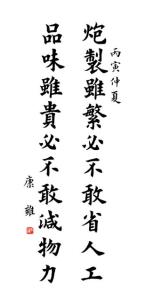 丙寅仲夏
炮製雖繁必不敢省人工
品味雖貴必不敢減物力
康雍